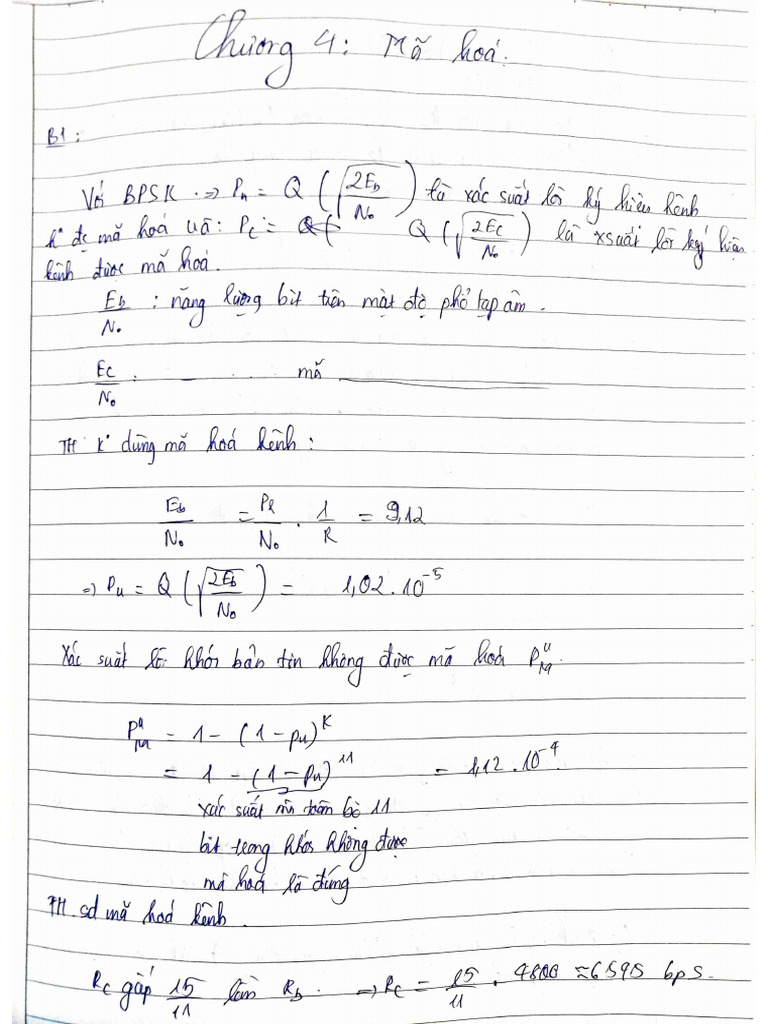 Chương 4: Mã hoá.
B1:
Với BPSK ⇒ Pu = Q(√(2Eb/No)) là xác suất lỗi ký hiệu kênh
k° đc mã hoá và: Pc = Q(√(2Ec/No)) là xsuất lỗi ký hiệu
kênh được mã hoá.
Eb/No : năng lượng bit trên mật độ phổ tạp âm.
Ec/No : mã
TH k° dùng mã hoá kênh:
Eb/No = PR/No . 1/R = 9,12
⇒ Pu = Q(√(2Eb/No)) = 1,02.10^-5
Xác suất lỗi khối bản tin không được mã hoá P_M^u
P_M^u = 1 - (1 - pu)^K
= 1 - (1 - pu)^11 = 1,12.10^-4
xác suất toàn bộ 11
bit trong khối không được
mã hoá là đúng
TH sd mã hoá kênh.
Rc gấp 15/11 lần Rb. ⇒ Rc = 15/11 . 4800 ≈ 6545 bps.